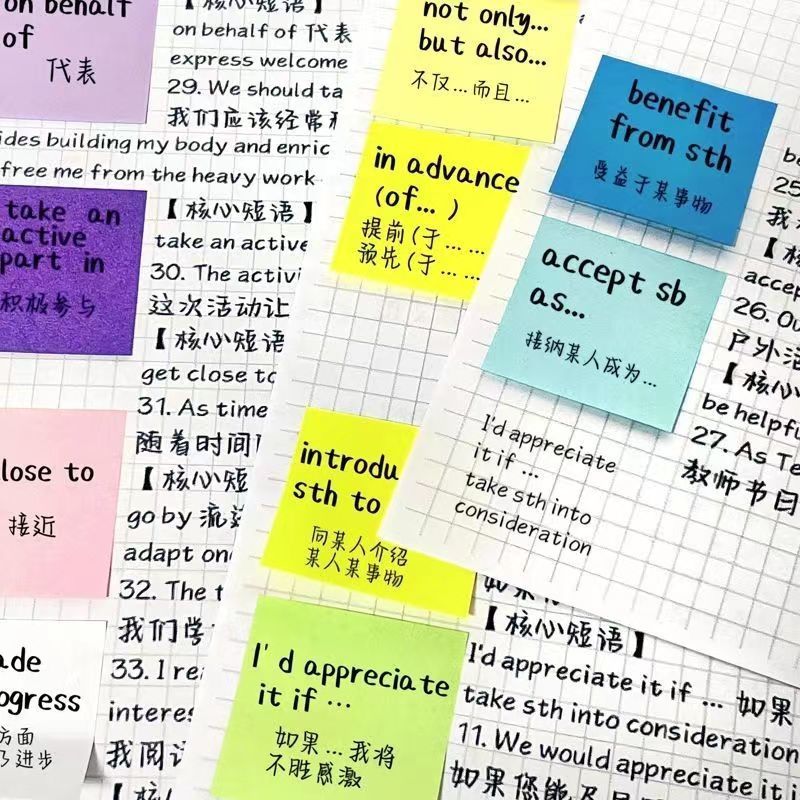 on behalf
of
代表
【核心短语】
on behalf of 代表
express welcome
29. We should
我们应该经常
building my body and
free me from the heavy work
take an
active
part in
积极参与
【核心短语】
take an active
30. The
这次活动让
【核心短语
get close to
31. As time
随着时间
【核心短
go by
adapt
32. The
我们
33. I
我阅
【核心
close to
接近
方面
进步
not only...
but also...
不仅...而且...
in advance
(of... )
提前(于... ...
预先(于... ...
sth to
向某人介绍
某人某事物
I'd appreciate
it if ...
如果...我将
不胜感激
【核心短语】
I'd appreciate it if ... 如果
take sth into consideration
11. We would appreciate it
如果您能
benefit
from sth
受益于某事物
accept sb
as...
接纳某人成为...
I'd appreciate
it if ...
take sth into
consideration
25
我
【核
26.
户外
【核心
be
27. As
教师节